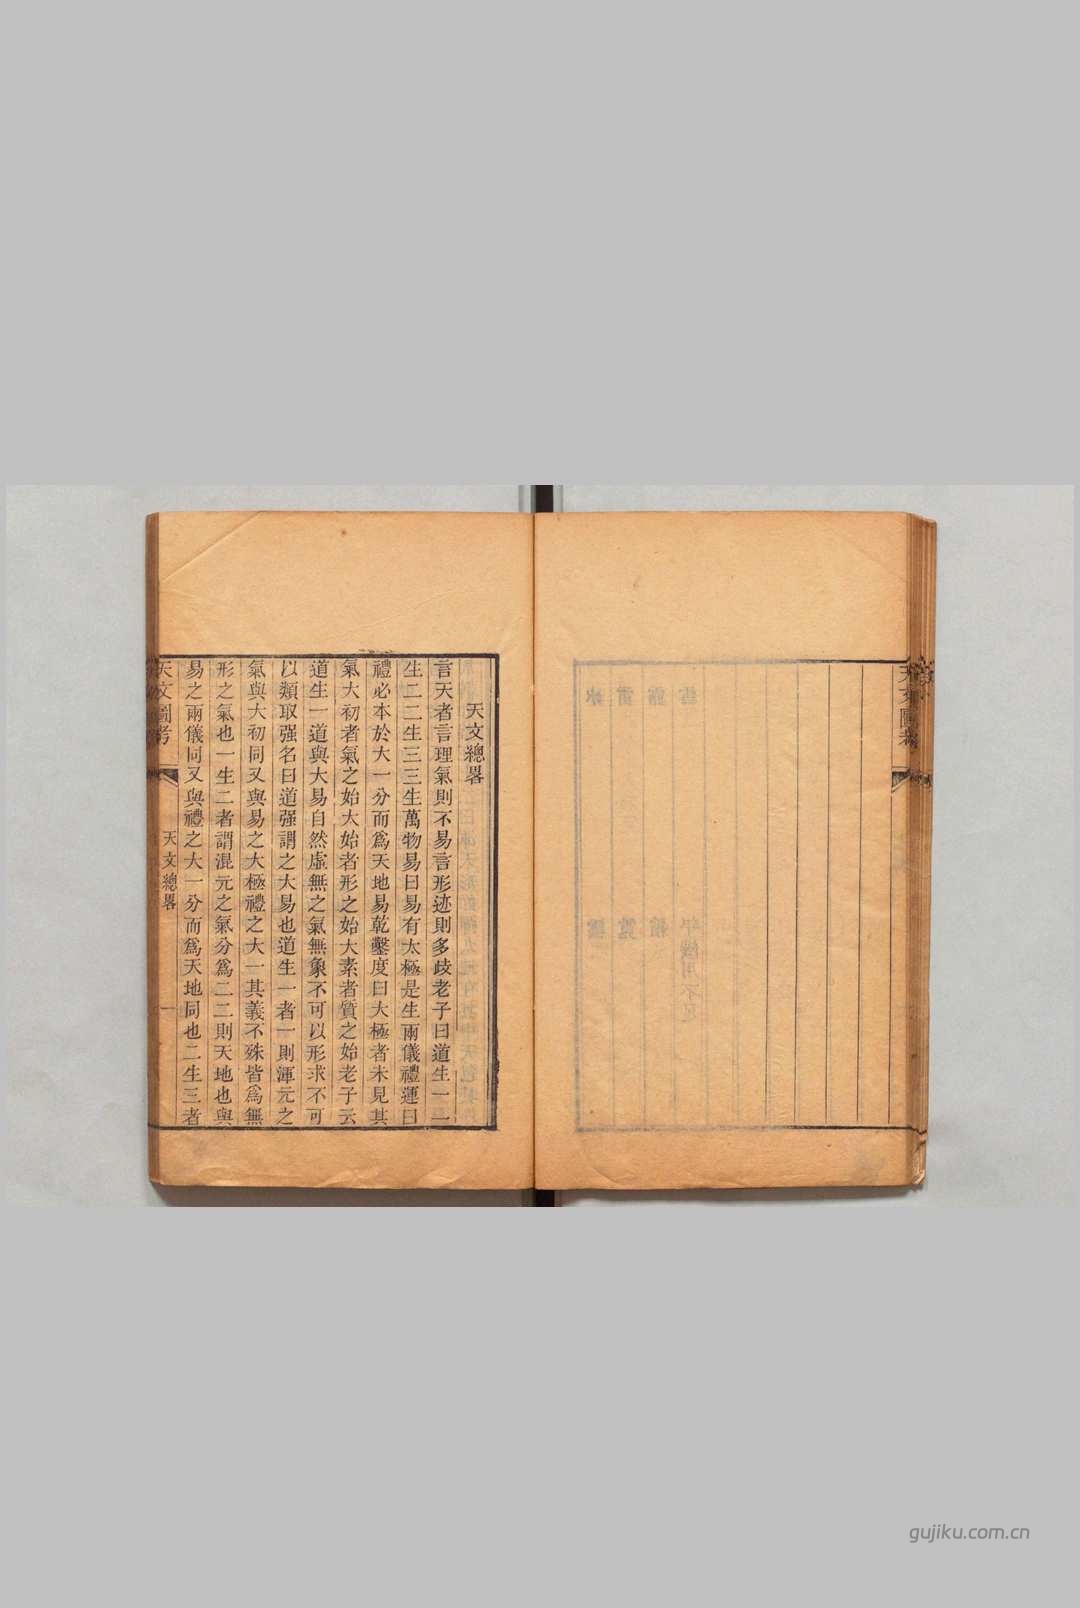 天文圖考
天文總畧
言天者言理氣則不易言形迹則多歧老子曰道生一一
生二二生三三生萬物易曰易有太極是生兩儀禮運曰
禮必本於大一分而爲天地易乾鑿度曰大極者未見其
氣大初者氣之始大始者形之始大素者質之始老子云
道生一道與大易自然虛無之氣無象不可以形求不可
以類取强名曰道强謂之大易也道生一者一則渾元之
氣與大初同又與易之大極禮之大一其義不殊皆爲無
形之氣也一生二者謂混元之氣分爲二二則天地也與
易之兩儀同又與禮之大一分而爲天地同也二生三者
天文圖考
天文總畧
一
gujiku.com.cn